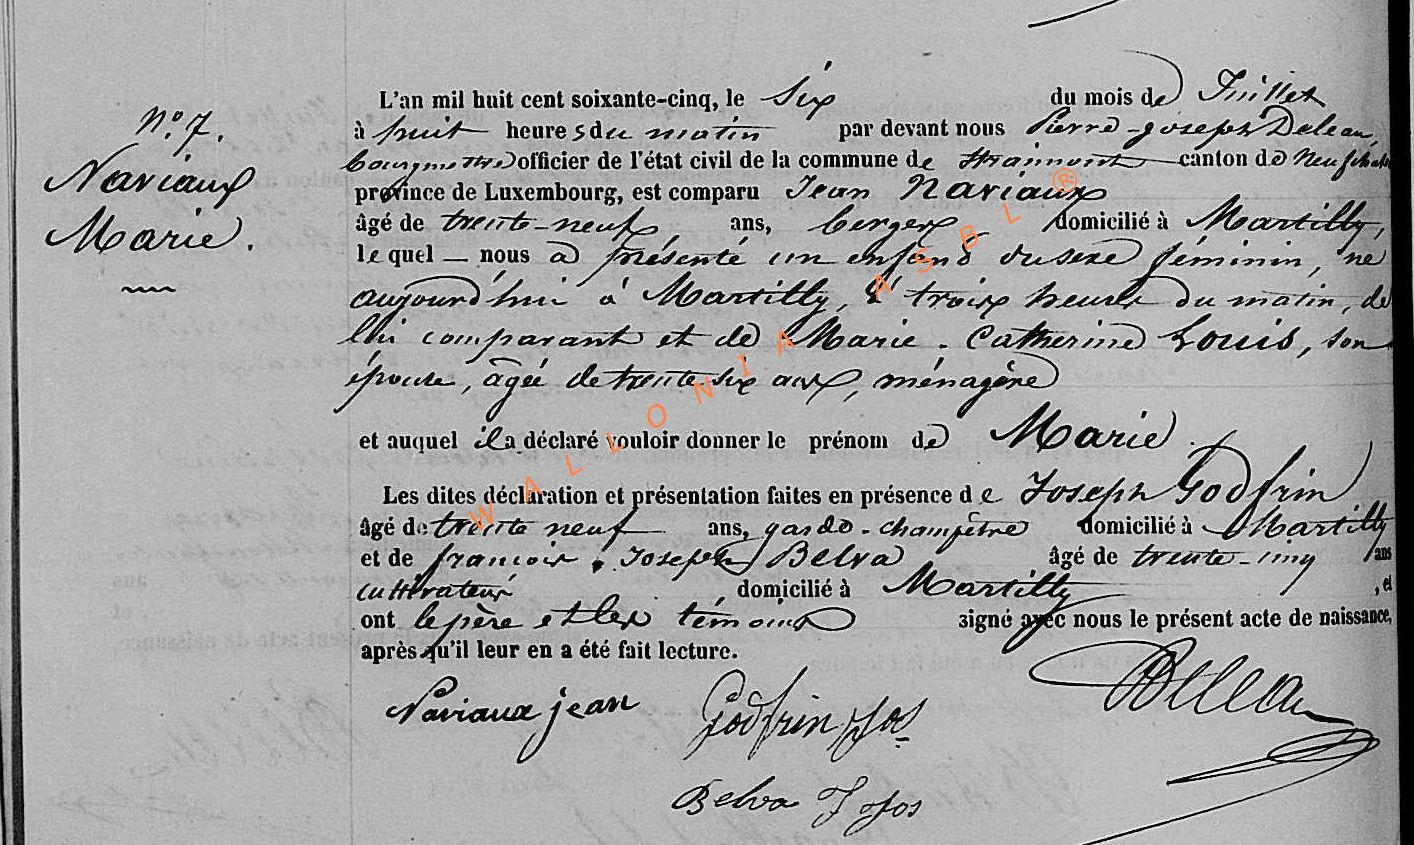 N.o 7.
Naviaux
Marie.
L'an mil huit cent soixante-cinq, le six du mois de Juillet
à huit heures du matin par devant nous Pierre-Joseph Deleau,
bourgmestre officier de l'état civil de la commune de Straimont canton de Neufchateau
province de Luxembourg, est comparu Jean Naviaux
âgé de trente-neuf ans, berger, domicilié à Martilly,
lequel nous a présenté un enfant du sexe féminin, né
aujourd'hui à Martilly, à trois heures du matin, de
lui comparant et de Marie-Catherine Louis, son
épouse, âgée de trente-six ans, ménagère
et auquel il a déclaré vouloir donner le prénom de Marie.
Les dites déclaration et présentation faites en présence de Joseph Godfrin
âgé de trente neuf ans, garde-champêtre domicilié à Martilly
et de françois-Joseph Belva âgé de trente-cinq ans
cultivateur domicilié à Martilly, et
ont le père et les témoins signé avec nous le présent acte de naissance,
après qu'il leur en a été fait lecture.
Naviaux jean Godfrin Jos Deleau
Belva F Jos
WALLONIA ASBL ®